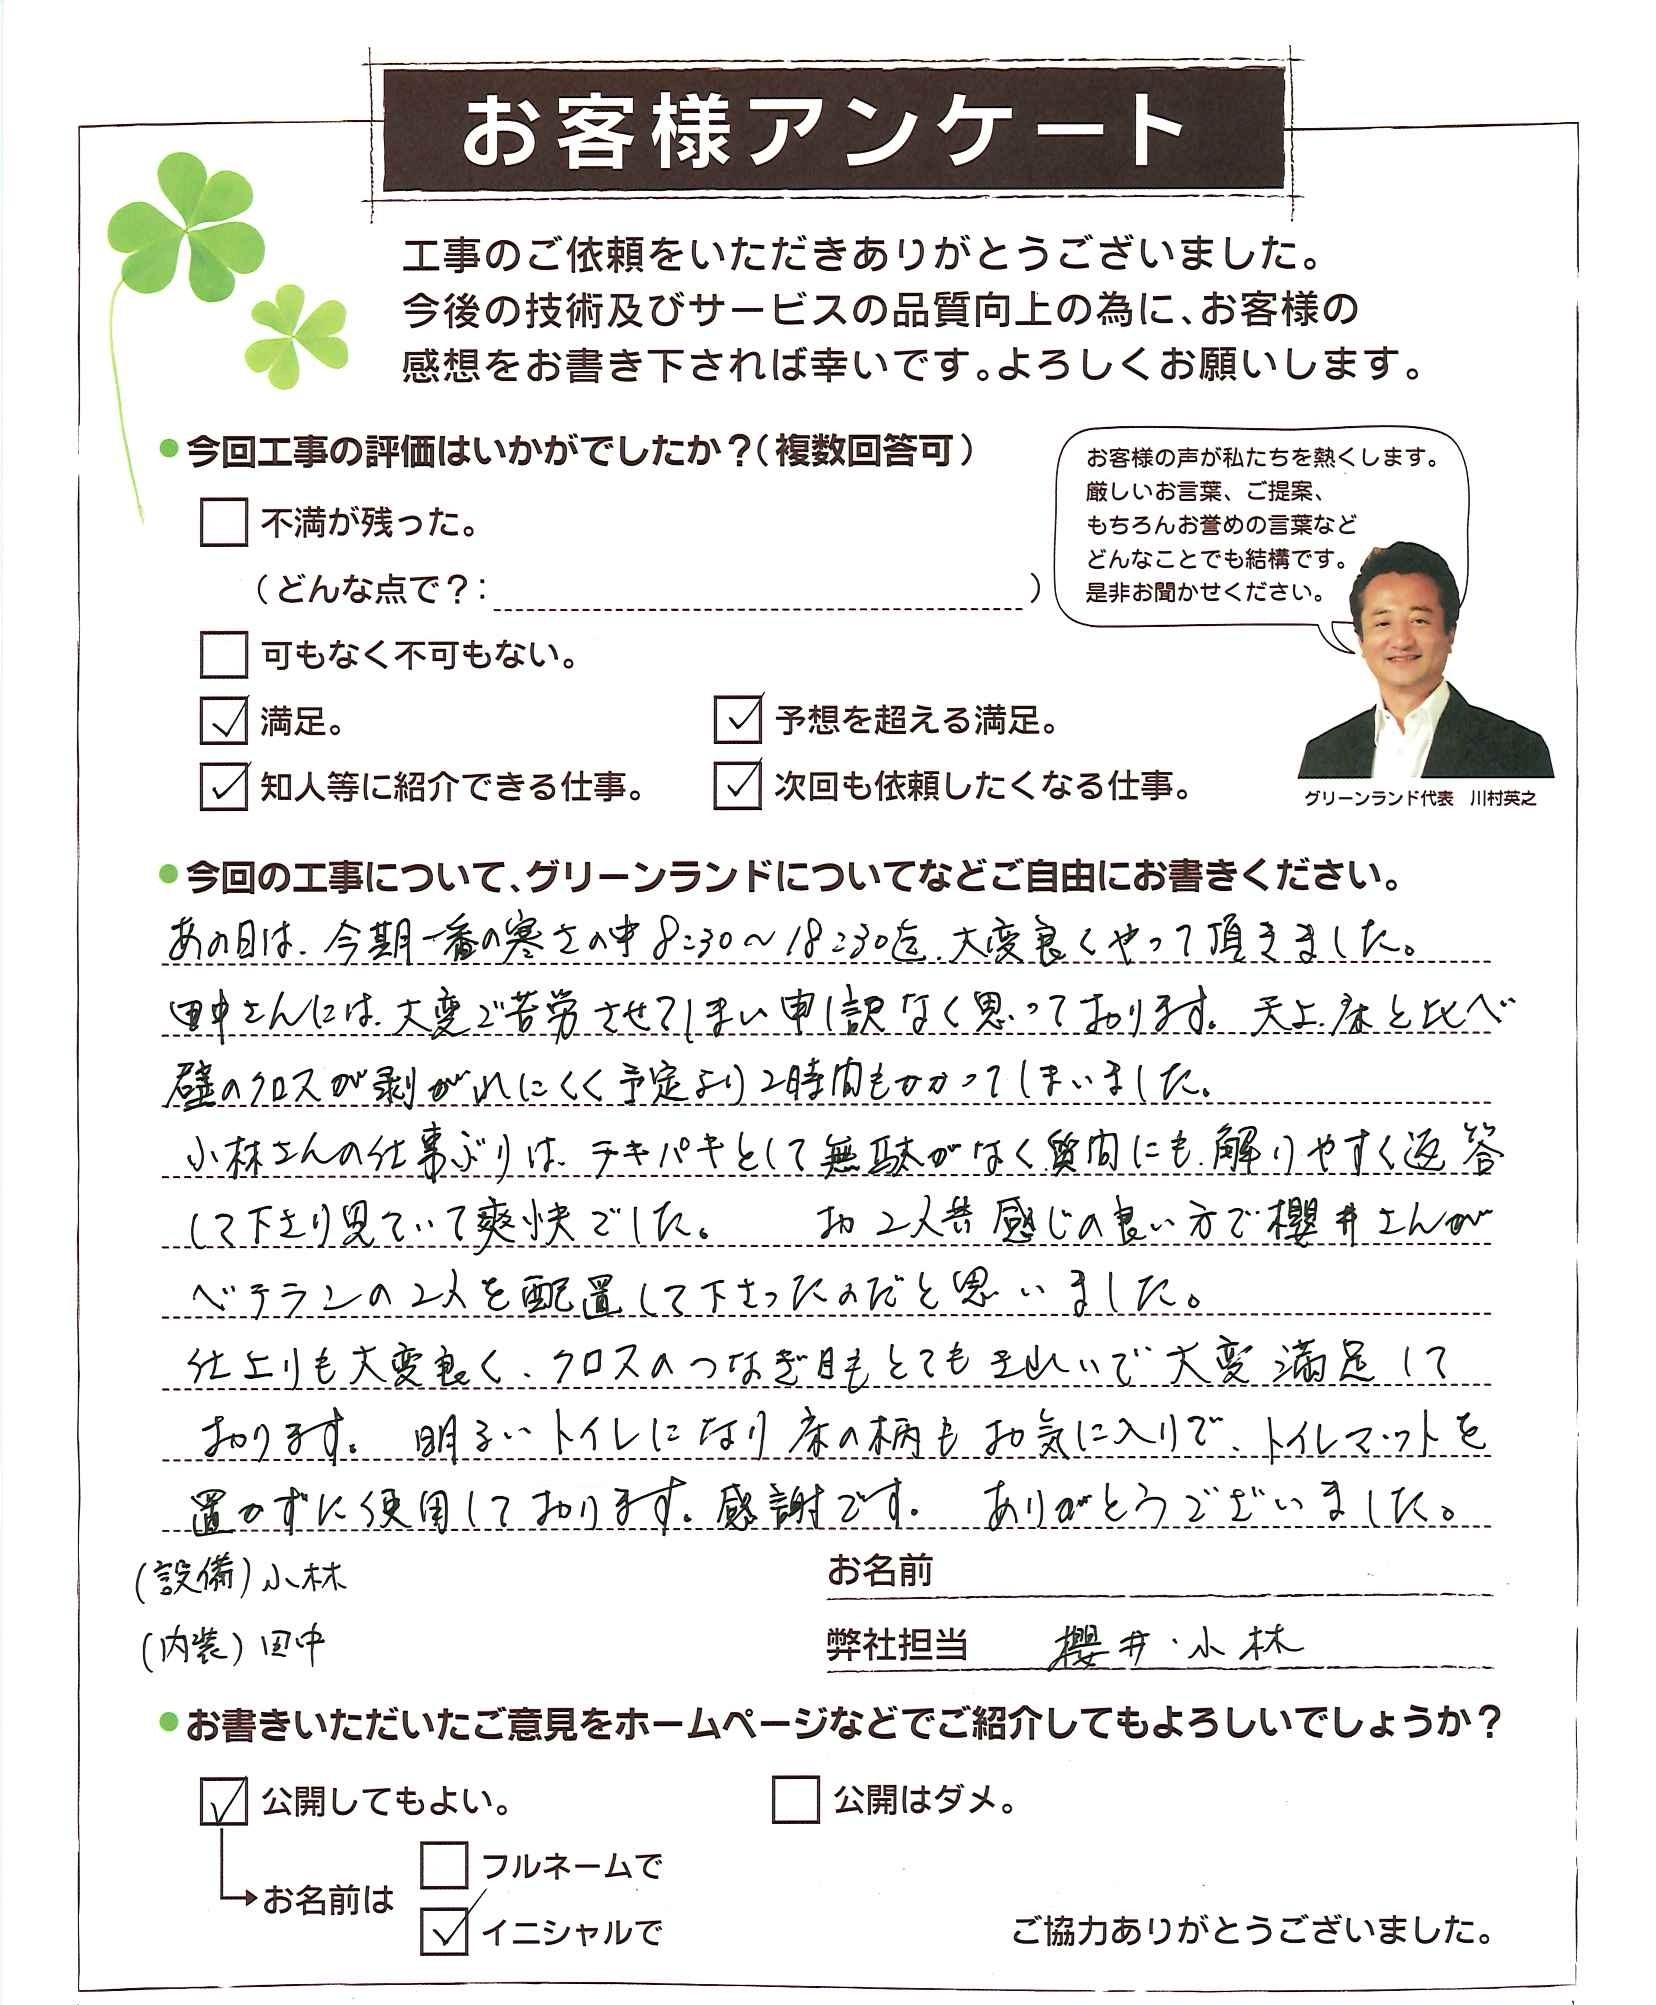 お客様アンケート
工事のご依頼をいただきありがとうございました。
今後の技術及びサービスの品質向上の為に、お客様の
感想をお書き下されば幸いです。よろしくお願いします。
●今回工事の評価はいかがでしたか？（複数回答可）
不満が残った。
（どんな点で？：　）
可もなく不可もない。
満足。
予想を超える満足。
知人等に紹介できる仕事。
次回も依頼したくなる仕事。
お客様の声が私たちを熱くします。
厳しいお言葉、ご提案、
もちろんお誉めの言葉など
どんなことでも結構です。
是非お聞かせください。
グリーンランド代表　川村英之
●今回の工事について、グリーンランドについてなどご自由にお書きください。
あの日は、今期一番の寒さの中8:30〜18:30迄、大変良くやって頂きました。
田中さんには、大変ご苦労させてしまい申し訳なく思っております。天上、床と比べ
壁のクロスが剥がれにくく予定より2時間もかかってしまいました。
小林さんの仕事ぶりは、テキパキとして無駄がなく質問にも、解りやすく返答
して下さり見ていて爽快でした。　お2人共感じの良い方で櫻井さんが
ベテランの2人を配置して下さったのだと思いました。
仕上りも大変良く、クロスのつなぎ目もとてもきれいで大変満足して
おります。　明るいトイレになり床の柄もお気に入りで、トイレマットを
置かずに使用しております。感謝です。　ありがとうございました。
(設備)小林
(内装)田中
お名前
弊社担当　櫻井・小林
●お書きいただいたご意見をホームページなどでご紹介してもよろしいでしょうか？
公開してもよい。
公開はダメ。
お名前は
フルネームで
イニシャルで
ご協力ありがとうございました。